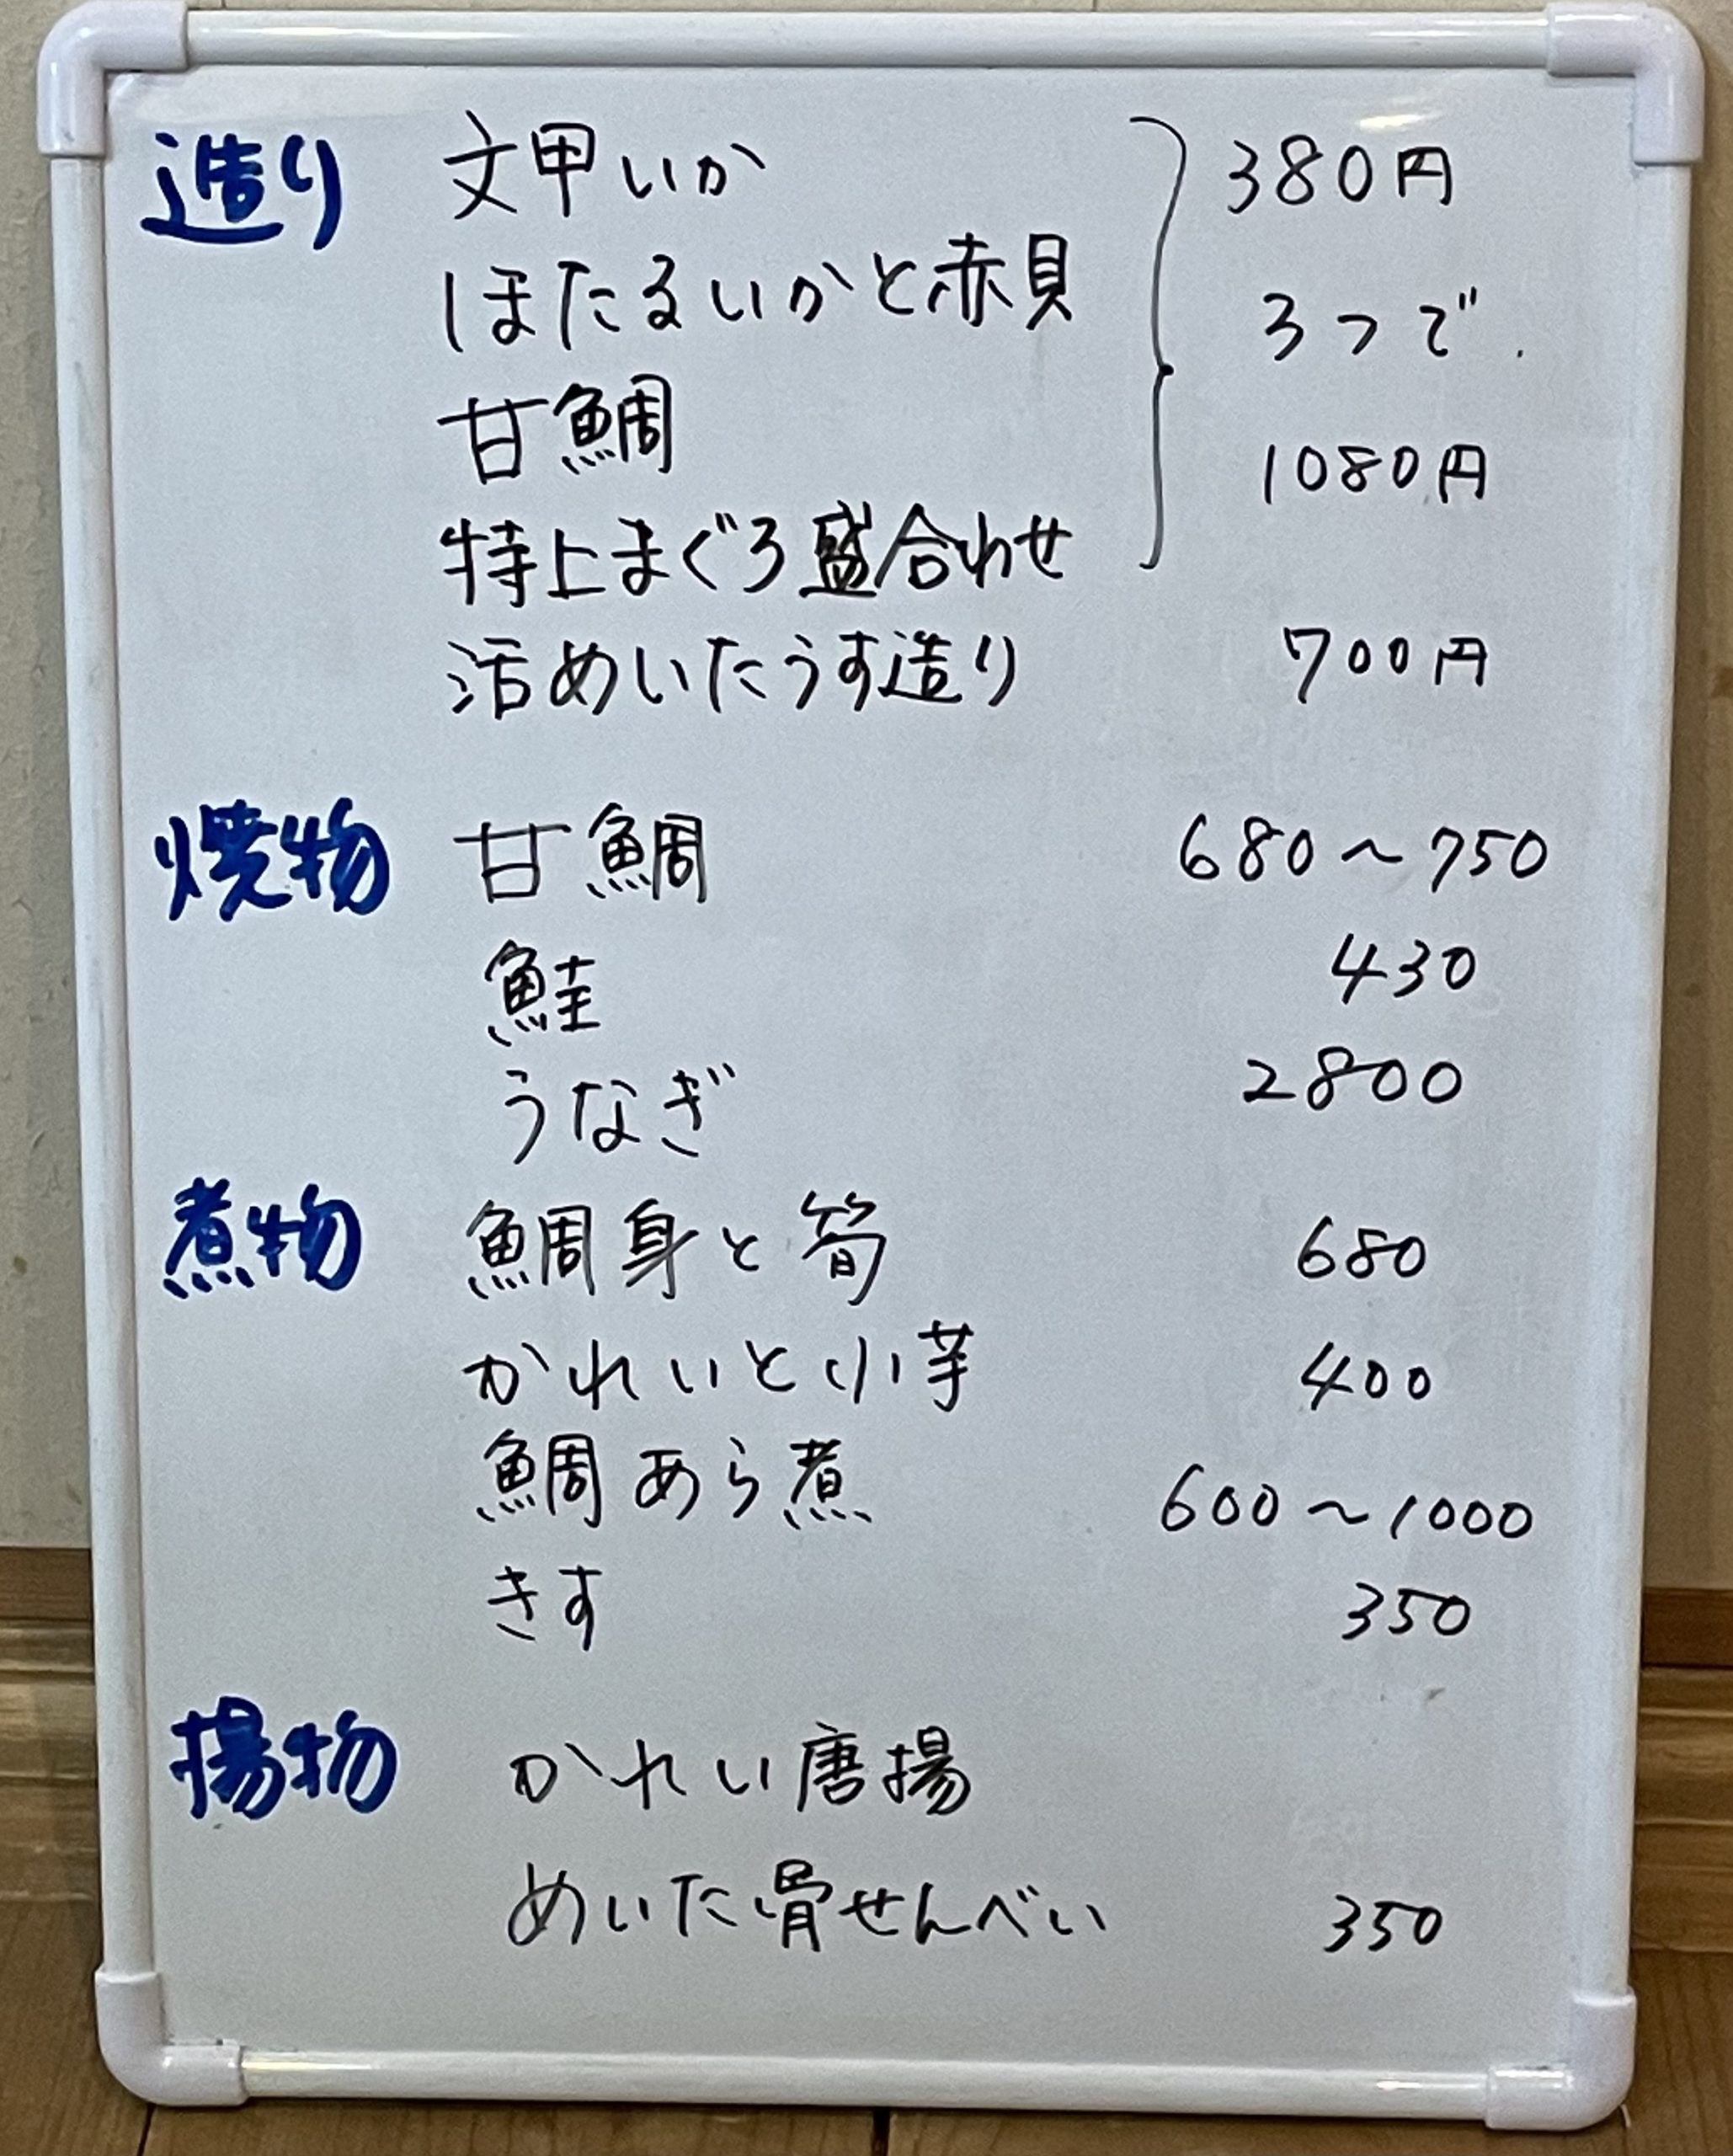 造り 文甲いか 380円
ほたるいかと赤貝 3つで
甘鯛 1080円
特上まぐろ盛合わせ
活めいたうす造り 700円
焼物 甘鯛 680〜750
鮭 430
うなぎ 2800
煮物 鯛身と筍 680
かれいと小芋 400
鯛あら煮 600〜1000
きす 350
揚物 かれい唐揚
めいた骨せんべい 350